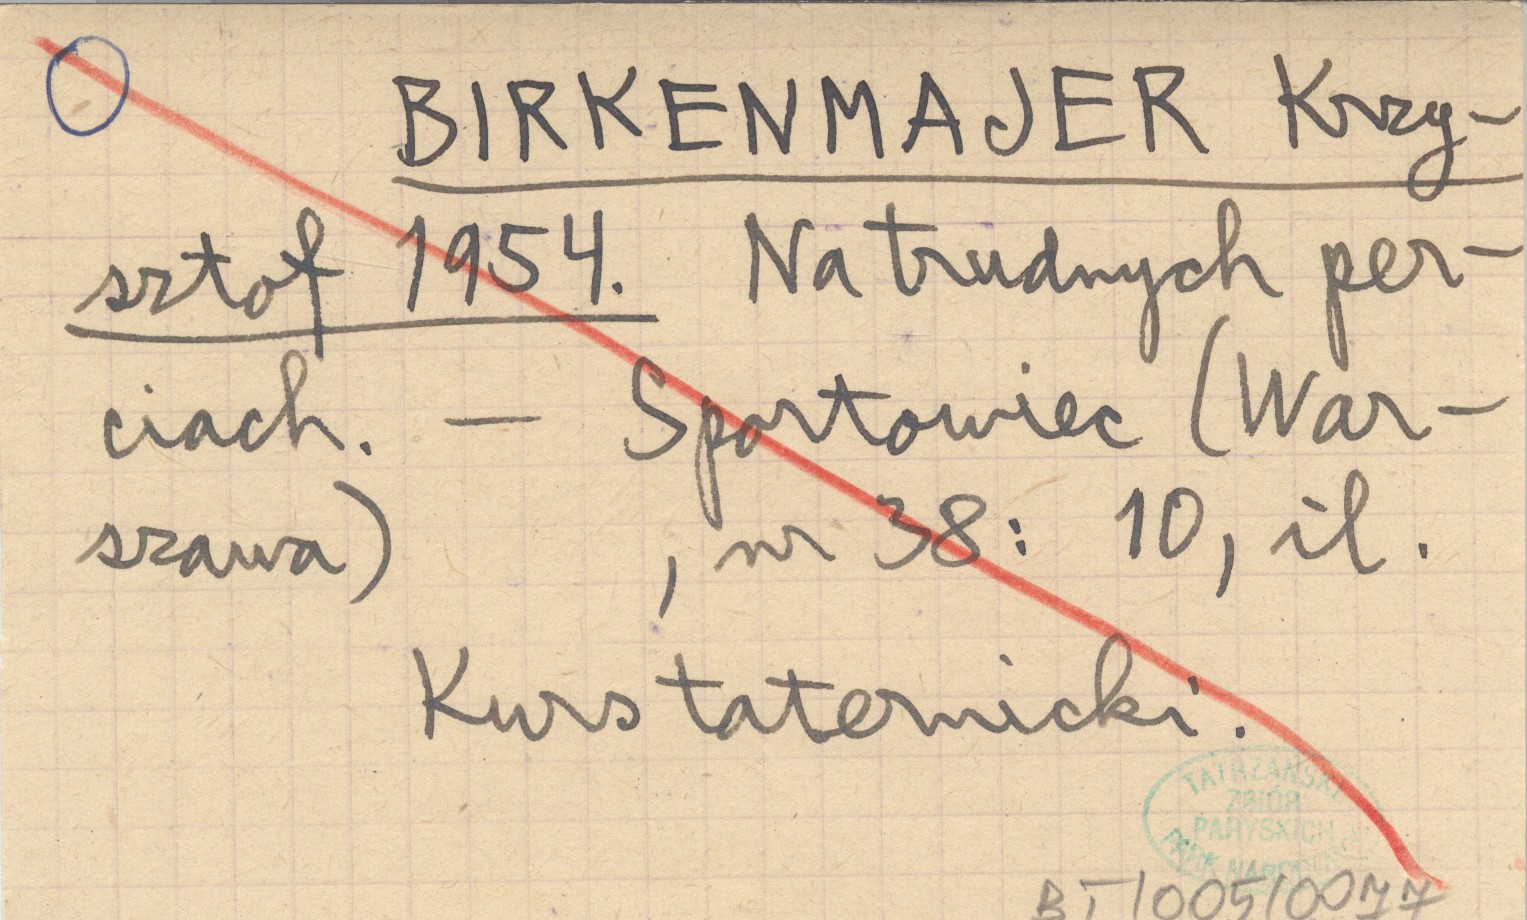 BIRKENMAJER Krzy-
sztof 1954. Na trudnych per-
ciach. — Sportowiec (War-
szawa) , nr 38: 10, il.
Kurs taternicki.
TATRZAŃSKI
ZBIÓR
PARYSKICH
PARK NARODOWY
BT/005/0077